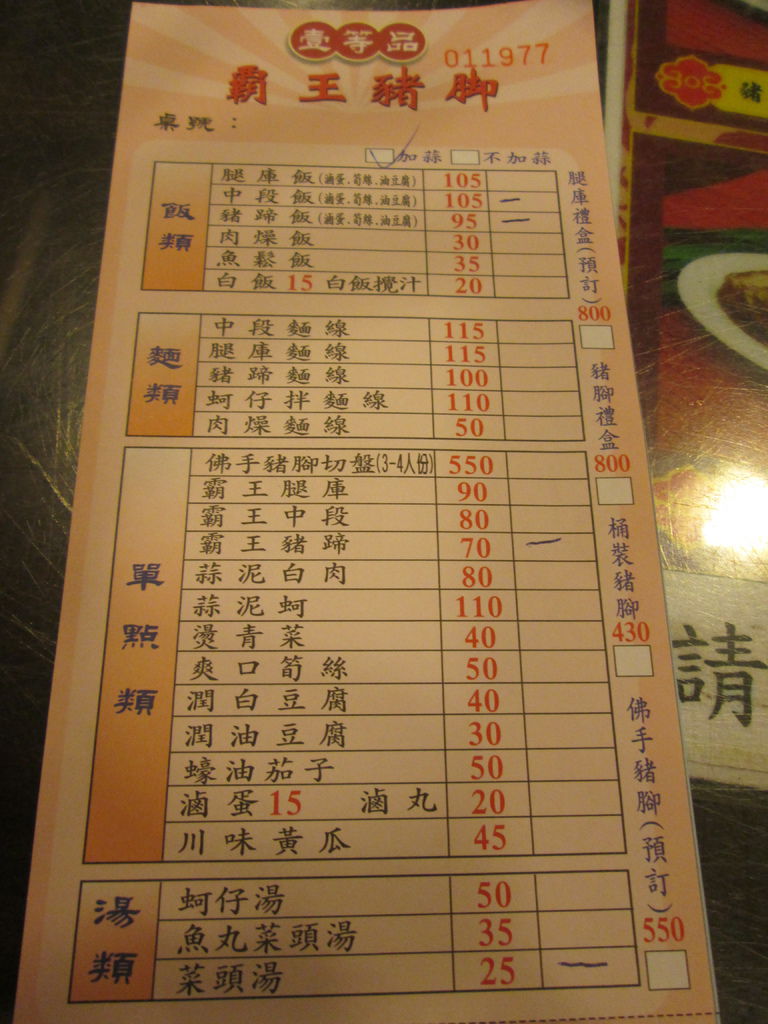 壹等品
011977
霸王豬腳
桌號：
加蒜 不加蒜
飯類
腿庫飯(滷蛋.筍絲.油豆腐) 105
中段飯(滷蛋.筍絲.油豆腐) 105 一
豬蹄飯(滷蛋.筍絲.油豆腐) 95 一
肉燥飯 30
魚鬆飯 35
白飯15 白飯攪汁 20
麵類
中段麵線 115
腿庫麵線 115
豬蹄麵線 100
蚵仔拌麵線 110
肉燥麵線 50
單點類
佛手豬腳切盤(3-4人份) 550
霸王腿庫 90
霸王中段 80
霸王豬蹄 70 一
蒜泥白肉 80
蒜泥蚵 110
燙青菜 40
爽口筍絲 50
潤白豆腐 40
潤油豆腐 30
蠔油茄子 50
滷蛋15 滷丸 20
川味黃瓜 45
湯類
蚵仔湯 50
魚丸菜頭湯 35
菜頭湯 25 一
腿庫禮盒(預訂)800
豬腳禮盒800
桶裝豬腳430
佛手豬腳(預訂)550
豬
請